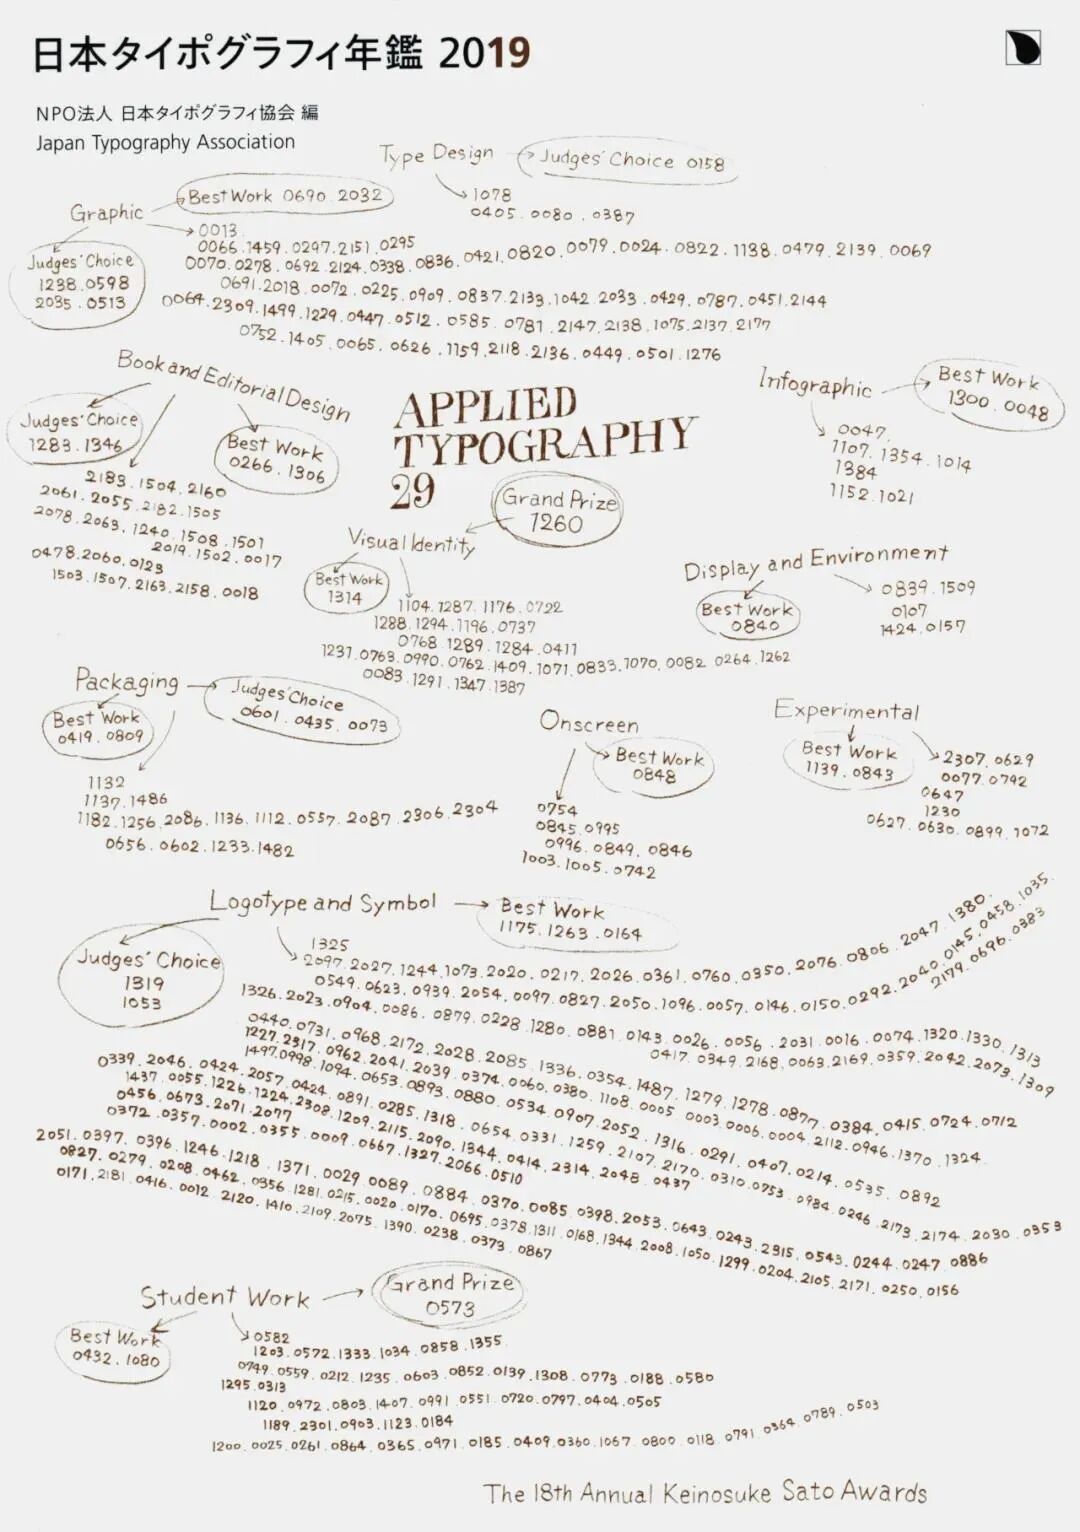 日本タイポグラフィ年鑑 2019
NPO法人 日本タイポグラフィ協会 編
Japan Typography Association
Type Design
Judges' Choice 0158
1078
0405.0080.0387
Graphic
Best Work 0690.2032
Judges' Choice
1238.0598
2035.0513
0013.
0066.1459.0297.2151.0295
0070.0278.0692.2124.0338.0836.0421.0820.0079.0024.0822.1138.0479.2139.0069
0691.2018.0072.0225.0909.0837.2133.1042.2033.0429.0787.0451.2144
0064.2309.1499.1229.0447.0512.0585.0781.2147.2138.1075.2137.2177
0752.1405.0065.0626.1159.2118.2136.0449.0501.1276
Book and Editorial Design
Judges' Choice
1283.1346
Best Work
0266.1306
2183.1504.2160
2061.2055.2182.1505
2078.2063.1240.1508.1501
2019.1502.0017
0478.2060.0123
1503.1507.2163.2158.0018
APPLIED
TYPOGRAPHY
29
Infographic
Best Work
1300.0048
0047.
1107.1354.1014
1384
1152.1021
Grand Prize
1260
Visual Identity
Best Work
1314
1104.1287.1176.0722
1288.1294.1196.0737
0768.1289.1284.0411
1237.0763.0990.0762.1409.1071.0833.1070.0082 0264.1262
0083.1291.1347.1387
Display and Environment
Best Work
0840
0839.1509
0107
1424.0157
Packaging
Judges' Choice
0601.0435.0073
Best Work
0419.0809
1132
1137.1486
1182.1256.2086.1136.1112.0557.2087.2306.2304
0656.0602.1233.1482
Onscreen
Best Work
0848
0754
0845.0995
0996.0849.0846
1003.1005.0742
Experimental
Best Work
1139.0843
2307.0629
0077.0792
0647
1230
0627.0630.0899.1072
Logotype and Symbol
Best Work
1175.1263.0164
Judges' Choice
1319
1053
1325
2097.2027.1244.1073.2020.0217.2026.0361.0760.0350.2076.0806.2047.1380.
0549.0623.0939.2054.0097.0827.2050.1096.0057.0146.0150.0292.2040.0145.0458.1035.
2179.0696.0383
1326.2023.0904.0086.0879.0228.1280.0881.0143.0026.0056.2031.0016.0074.1320.1330.1313
0417.0349.2168.0063.2169.0359.2042.2073.1309
0440.0731.0968.2172.2028.2085.1336.0354.1487.1279.1278.0877.0384.0415.0724.0712
1227.2317.0962.2041.2039.0374.0060.0380.1108.0005.0003.0006.0004.2112.0946.1370.1324.
1497.0998.1094.0653.0893.0880.0534.0907.2052.1316.0291.0407.0214.0535.0892
0339.2046.0424.2057.0424.0891.0285.1318.0654.0331.1259.2107.2170.0310.0753.0984.0246.2173.2174.2030.0353
1437.0055.1226.1224.2308.1209.2115.2090.1344.0414.2314.2048.0437
0456.0673.2071.2077
0372.0357.0002.0355.0009.0667.1327.2066.0510
2051.0397.0396.1246.1218.1371.0029.0089.0884.0370.0085.0398.2053.0643.0243.2315.0543.0244.0247.0886
0827.0279.0208.0462.0356.1281.0215.0020.0170.0695.0378.1311.0168.1344.2008.1050.1299.0204.2105.2171.0250.0156
0171.2181.0416.0012.2120.1410.2109.2075.1390.0238.0373.0867
Student Work
Grand Prize
0573
Best Work
0432.1080
0582
1203.0572.1333.1034.0858.1355.
0749.0559.0212.1235.0603.0852.0139.1308.0773.0188.0580
1295.0313
1120.0972.0803.1407.0991.0551.0720.0797.0404.0505
1189.2301.0903.1123.0184
1200.0025.0261.0864.0365.0971.0185.0409.0360.1067.0800.0118.0791.0364.0789.0503
The 18th Annual Keinosuke Sato Awards